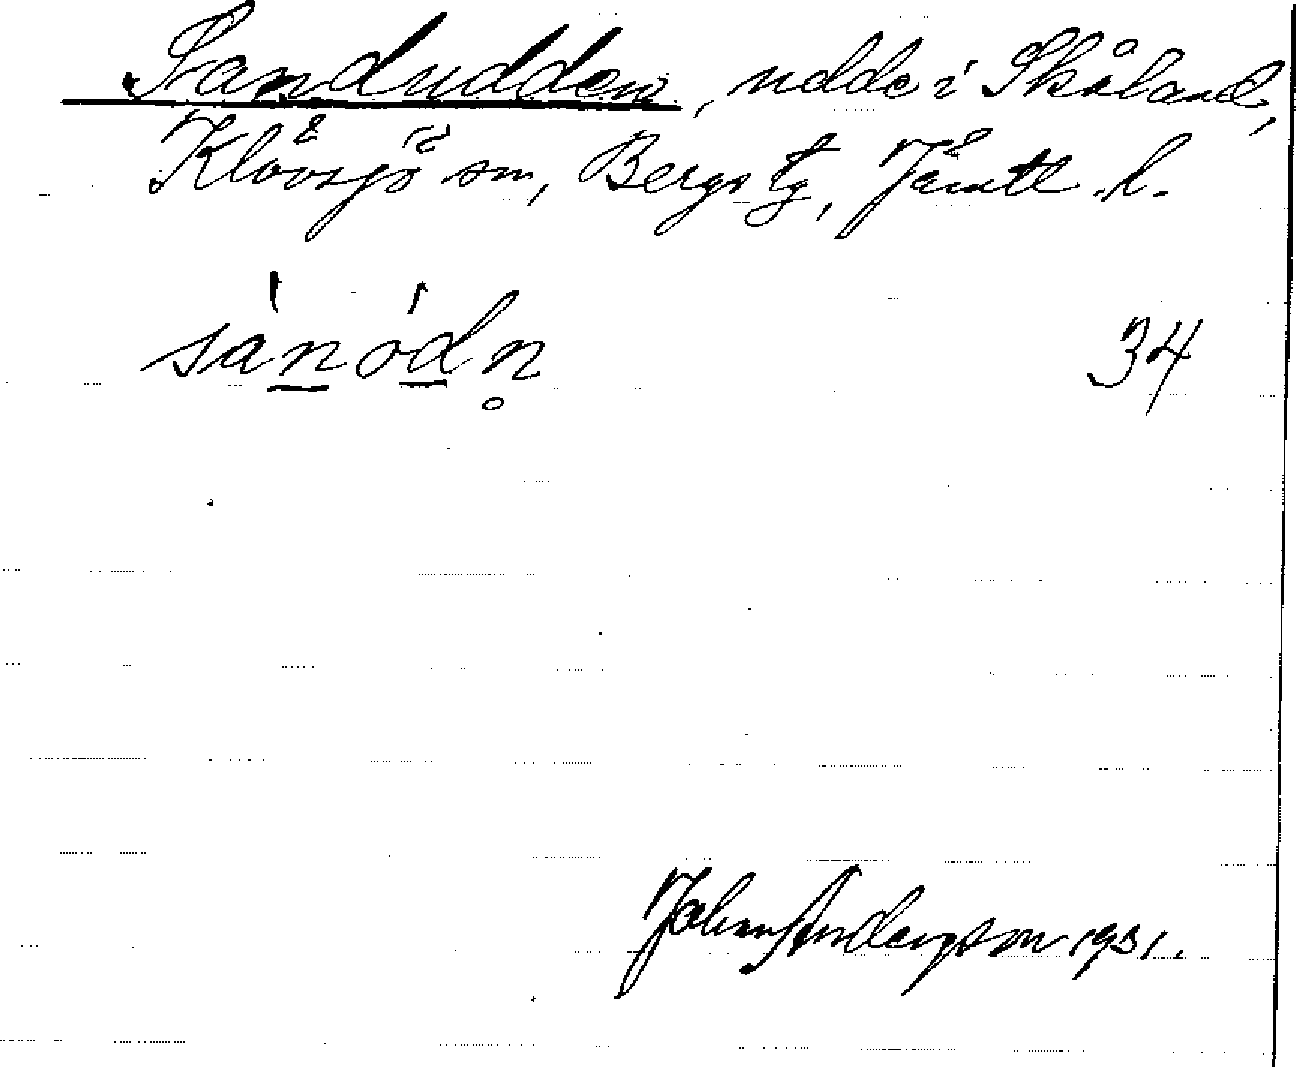 Sandudden, udde i Skålan,
Klövsjö sn, Bergs tg, Jämtl. l.
sánódn̥
34
Johan Anderson 1931.